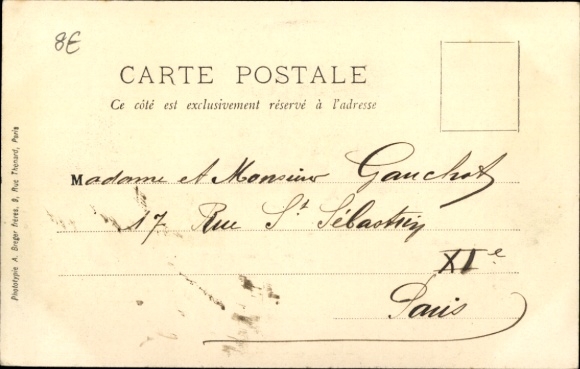 8E
CARTE POSTALE
Ce côté est exclusivement réservé à l'adresse
Madame et Monsieur Gauchot
17 Rue St Sébastien
XIe
Paris
Phototypie A. Breger frères, 9, Rue Thénard, Paris